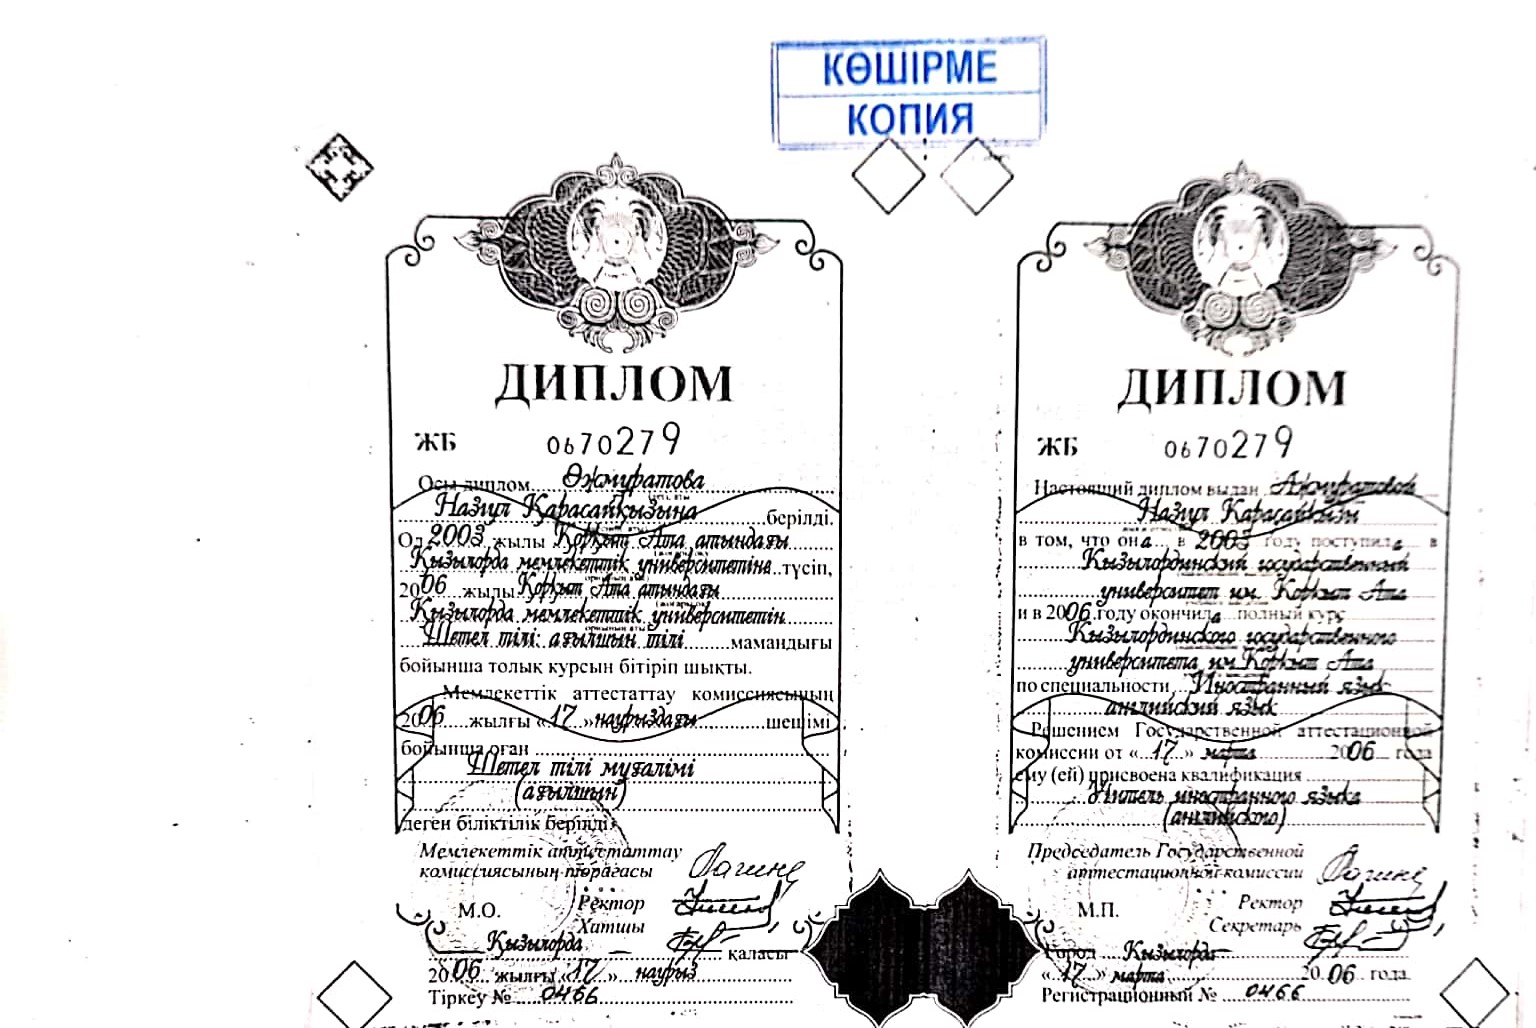 КӨШІРМЕ
КОПИЯ
ДИПЛОМ
ЖБ 0670279
Осы диплом Әжмұратова
Назгүл Қарасайқызына берілді.
Ол 2003 жылы Қорқыт Ата атындағы
Қызылорда мемлекеттік университетіне түсіп,
2006 жылы Қорқыт Ата атындағы
Қызылорда мемлекеттік университетін
Шетел тілі: ағылшын тілі мамандығы
бойынша толық курсын бітіріп шықты.
Мемлекеттік аттестаттау комиссиясының
2006 жылғы «17» наурыздағы шешімі
бойынша оған
Шетел тілі мұғалімі
(ағылшын)
деген біліктілік берілді.
Мемлекеттік аттестаттау
комиссиясының төрағасы
Ректор
М.О.
Хатшы
Қызылорда қаласы
2006 жылғы «17» наурыз
Тіркеу № 0466
ДИПЛОМ
ЖБ 0670279
Настоящий диплом выдан Ажмуратовой
Назгул Карасайкызы
в том, что она в 2003 году поступила в
Кызылординский государственный
университет им. Коркыт Ата
и в 2006 году окончила полный курс
Кызылординского государственного
университета им. Коркыт Ата
по специальности Иностранный язык:
английский язык
Решением Государственной аттестационной
комиссии от «17» марта 2006 года
ему (ей) присвоена квалификация
Учитель иностранного языка
(английского)
Председатель Государственной
аттестационной комиссии
Ректор
М.П.
Секретарь
Город Кызылорда
«17» марта 2006 года
Регистрационный № 0466